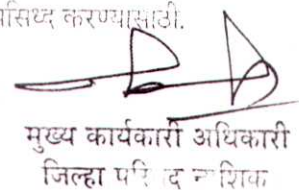 प्रसिध्द करण्यासाठी.
मुख्य कार्यकारी अधिकारी
जिल्हा नाशिक